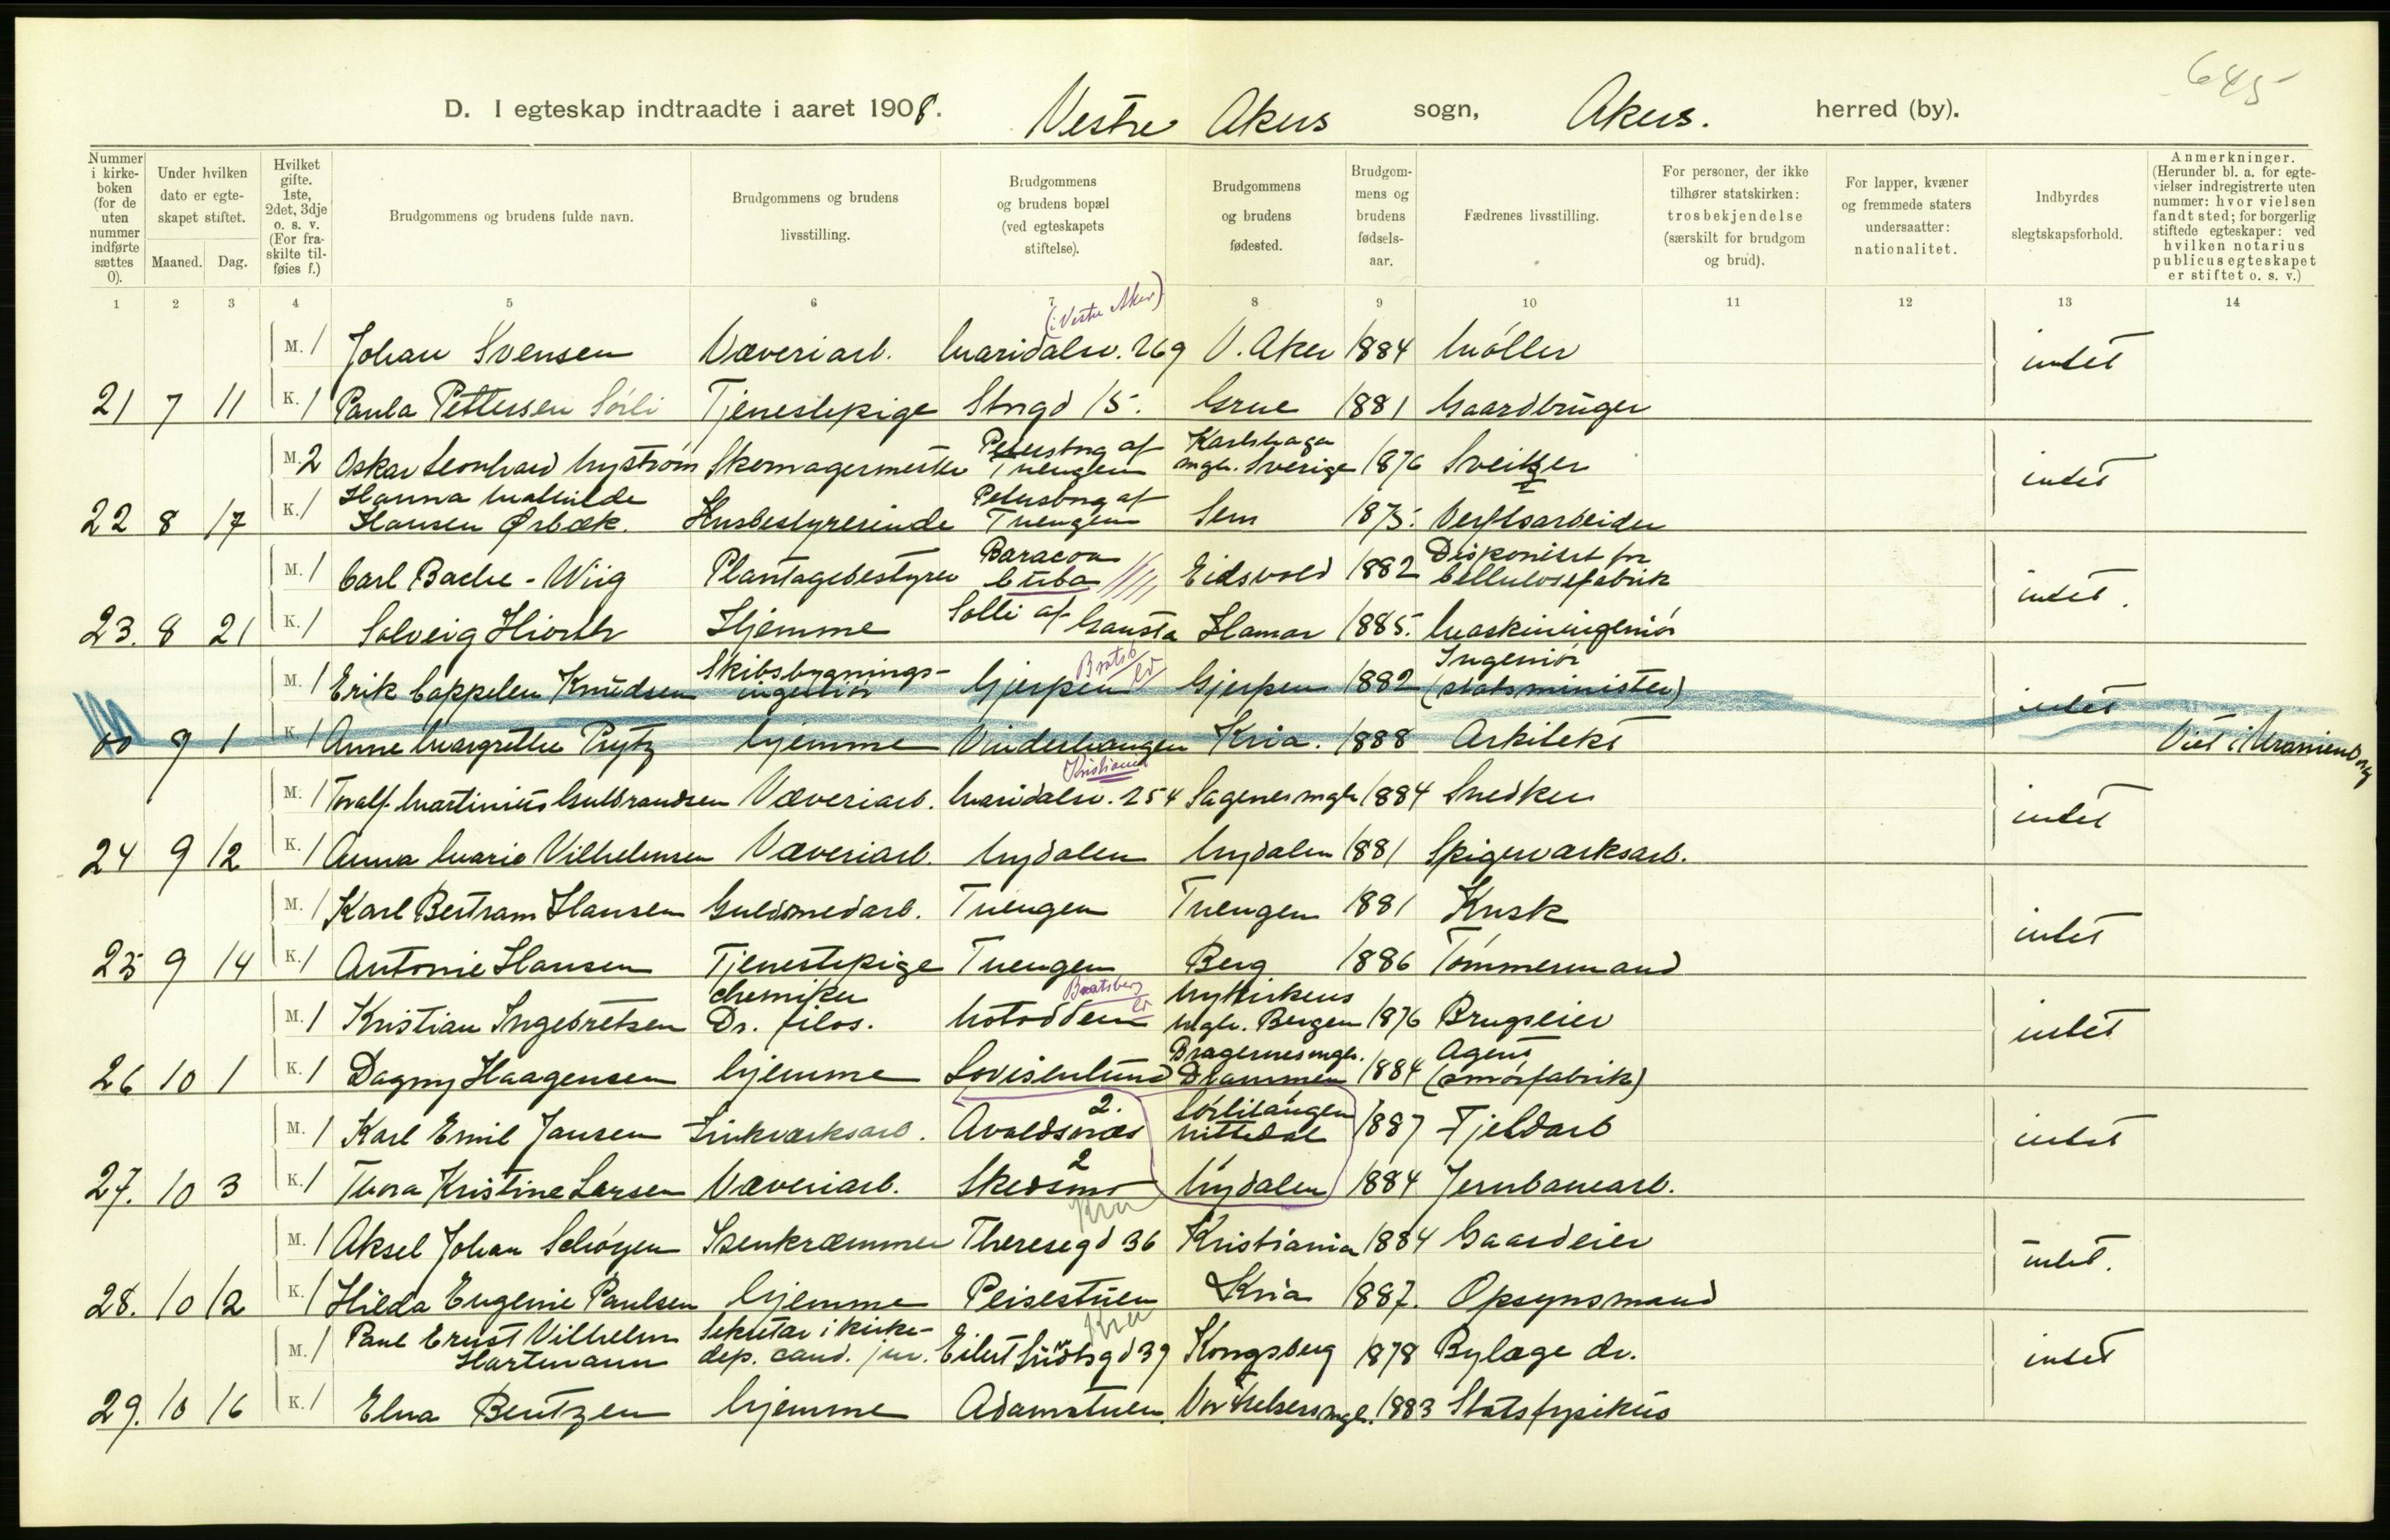 645
D. I egteskap indtraadte i aaret 1908. Vestre Akers sogn, Akers. herred (by).
Nummer i kirkeboken (for de uten nummer indførte sættes 0).
Under hvilken dato er egteskapet stiftet.
Maaned. Dag.
Hvilket gifte. 1ste, 2det, 3dje o. s. v. (For fraskilte tilføies f.)
Brudgommens og brudens fulde navn.
Brudgommens og brudens livsstilling.
Brudgommens og brudens bopæl (ved egteskapets stiftelse).
Brudgommens og brudens fødested.
Brudgommens og brudens fødselsaar.
Fædrenes livsstilling.
For personer, der ikke tilhører statskirken: trosbekjendelse (særskilt for brudgom og brud).
For lapper, kvæner og fremmede staters undersaatter: nationalitet.
Indbyrdes slegtskapsforhold.
Anmerkninger. (Herunder bl. a. for egtevielser indregistrerte uten nummer: hvor vielsen fandt sted; for borgerlig stiftede egteskaper: ved hvilken notarius publicus egteskapet er stiftet o. s. v.)
1 2 3 4 5 6 7 8 9 10 11 12 13 14
(i Vestre Aker)
M. 1 Johan Svensen Væveriarb. Maridalsv. 269 V. Aker 1884 Møller intet
21 7 11 K. 1 Paula Pettersen Sørli Tjenestepige Strgd 15. Grue 1881 Gaardbruger
M. 2 Oskar Leonhard Nystrøm Skomagermester Petersborg af Tuengen Karlskaga mgh. Sverige 1876 Sveitzer intet
22 8 17 K. 1 Hanna Mathilde Hansen Ørbæk. Husbestyrerinde Petersborg af Tuengen Sem 1875. Verftsarbeider
M. 1 Carl Bache-Wiig Plantagebestyrer Baracoa Cuba Eidsvold 1882 Disponent for Cellulosefabrik intet.
23. 8 21 K. 1 Solveig Hiorth Hjemme Solli af Gausta Hamar 1885. Maskiningeniør
M. 1 Erik Cappelen Knudsen Skibsbygnings-ingeniør Gjerpen Bratsb Gjerpen 1882 Ingeniør (statsminister) intet
00 9 1 K. 1 Anne Margrethe Prytz hjemme Vinderhaugen Kria. 1888 Arkitekt Viet i Uranienborg
Kristiania
M. 1 Toralf Martinius Gulbrandsen Væveriarb. Maridalsv. 254 Sagenes mgh 1884 Snedker intet
24 9 12 K. 1 Anna Marie Vilhelmsen Væveriarb. Nydalen Nydalen 1881 Spigerværksarb.
M. 1 Karl Bertram Hansen Guldsmedarb. Tuengen Tuengen 1881 Kusk intet
25 9 14 K. 1 Antonie Hansen Tjenestepige Tuengen Berg 1886 Tømmermand
M. 1 Kristian Ingebretsen chemiker Dr. filos. Notodden Bratsberg Nykirkens mgh. Bergen 1876 Brugseier intet
26 10 1 K. 1 Dagny Haagensen hjemme Lovisenlund Bragernes mgh. Drammen 1884 Agent (smørfabrik)
M. 1 Karl Emil Jansen Zinkværksarb. Avaldsnæs 2. Sørlitangen Nittedal 1887 Fjeldarb intet
27. 10 3 K. 1 Thora Kristine Larsen Væveriarb. Skedsmo 2 Nydalen 1884 Jernbanearb.
Kria
M. 1 Aksel Johan Schøyen Isenkræmmer Theresegd 36 Kristiania 1884 Gaardeier intet.
28. 10 12 K. 1 Hilda Eugenie Paulsen hjemme Peisestuen Kria 1887. Opsynsmand
Kria
M. 1 Paul Ernst Vilhelm Hartmann Sekretær i kirke-dep. cand. jur. Eilert Sundtsgd 39 Kongsberg 1878 Bylæge dr. intet
29. 10 16 K. 1 Elna Bentzen hjemme Adamstuen. Vor Frelsers mgh. 1883 Statsfysikus